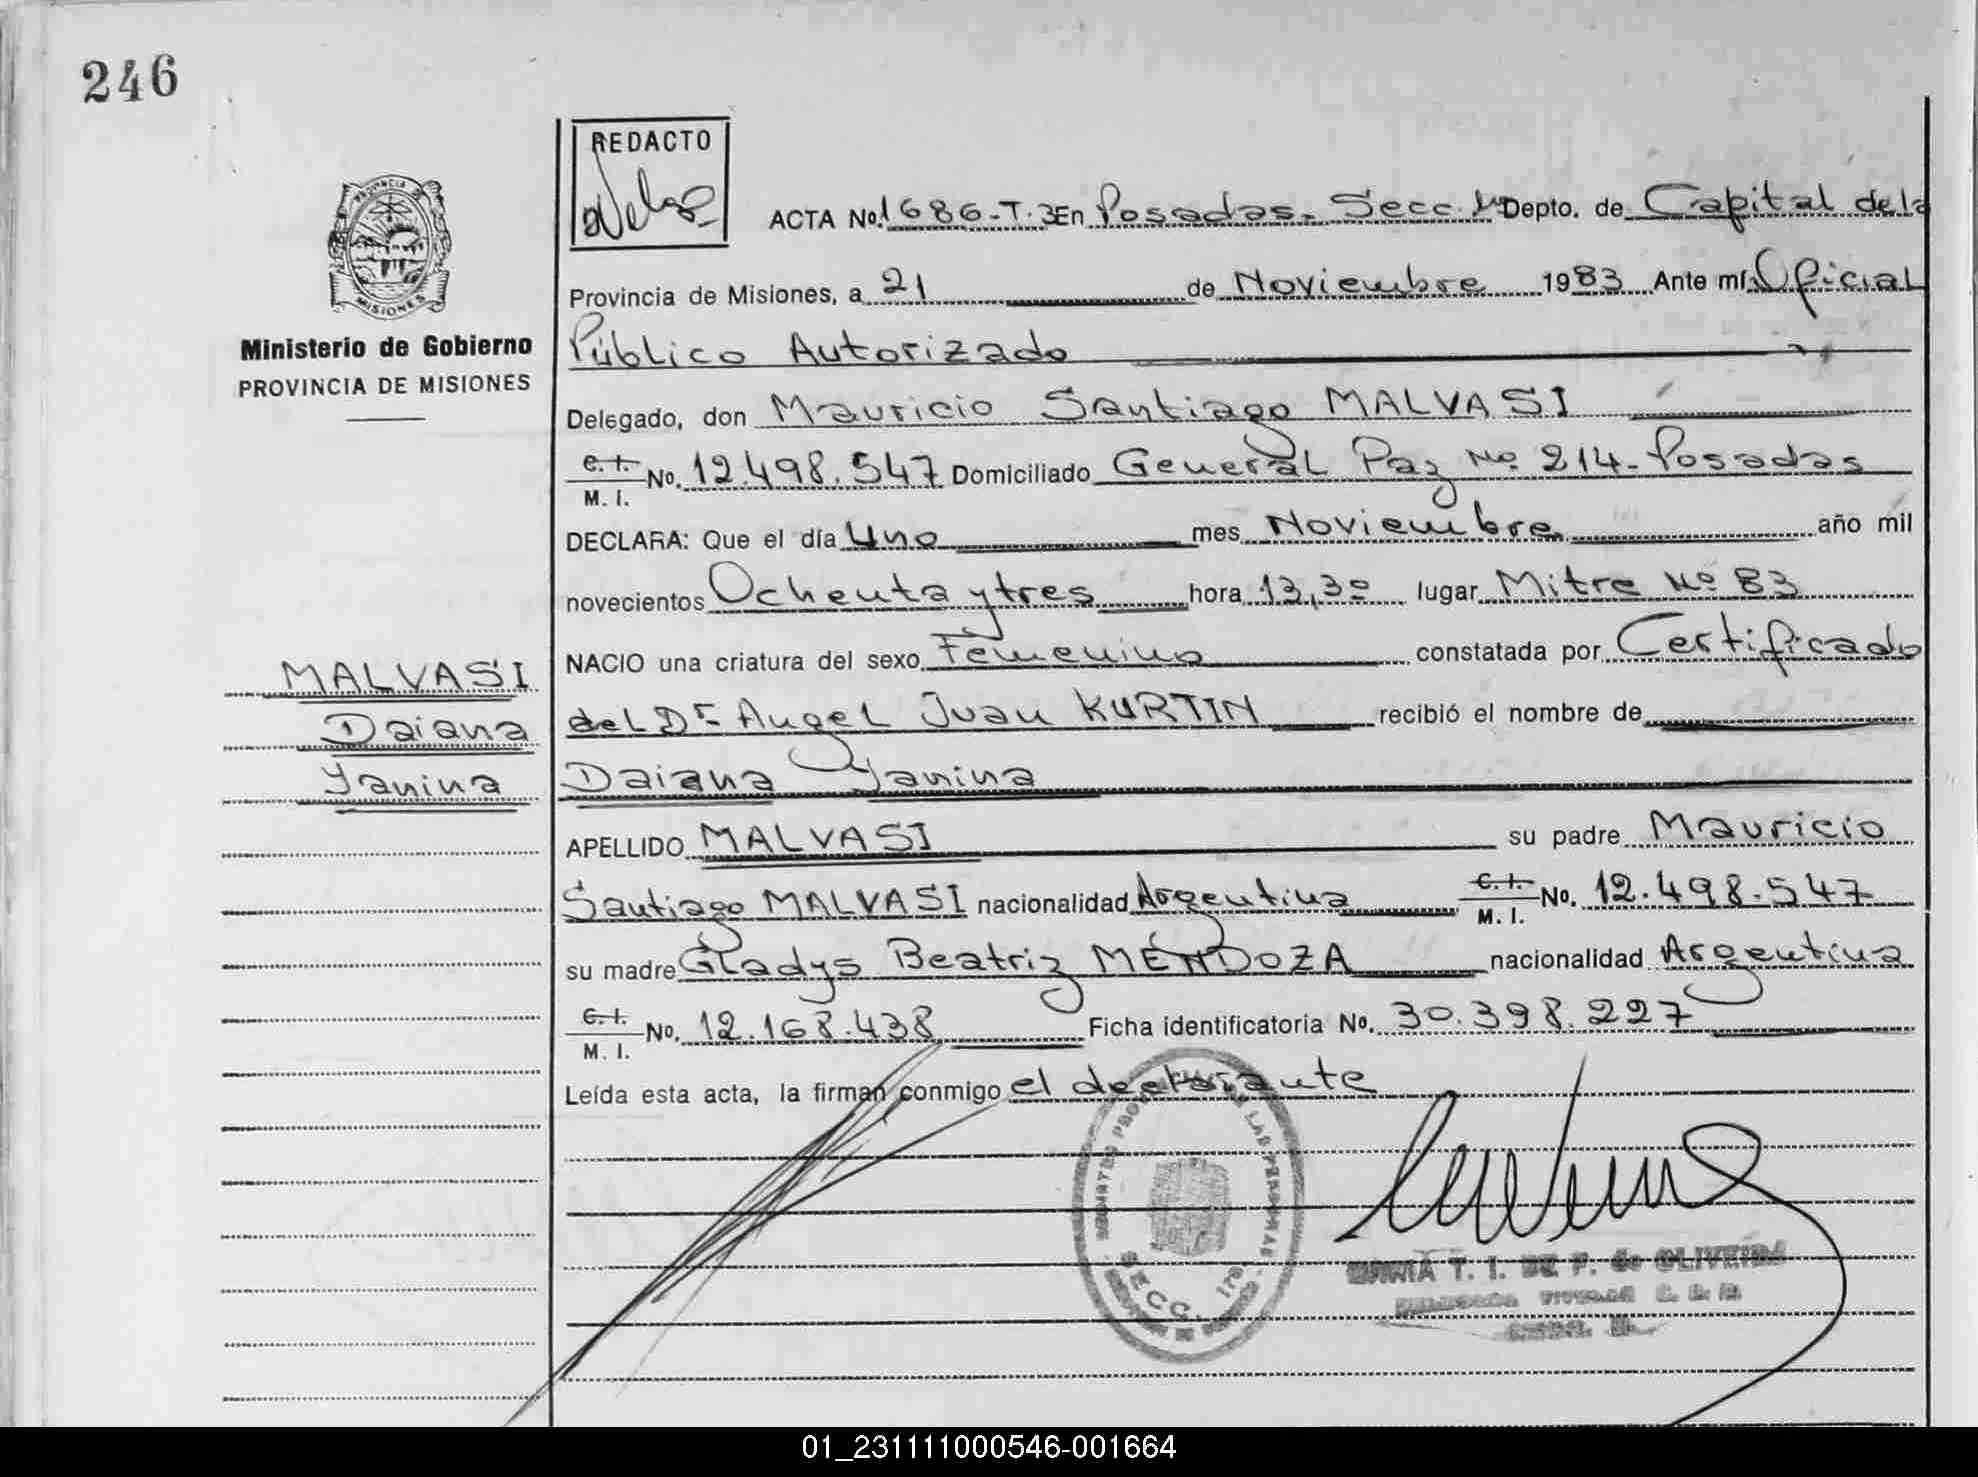 246
REDACTO
PROVINCIA DE
MISIONES
Ministerio de Gobierno
PROVINCIA DE MISIONES
ACTA No. 1686-T.3 En Posadas. Secc. 1ª Depto. de Capital de la
Provincia de Misiones, a 21 de Noviembre 1983 Ante mí Oficial
Público Autorizado
Delegado, don Mauricio Santiago MALVASI
C. I.
M. I. No. 12.498.547 Domiciliado General Paz Nº 214-Posadas
DECLARA: Que el día Uno mes Noviembre año mil
novecientos Ochenta y tres hora 13,30 lugar Mitre Nº 83
NACIO una criatura del sexo Femenino constatada por Certificado
del Dr Angel Juan KURTIN recibió el nombre de
Daiana Yanina
MALVASI
Daiana
Yanina
APELLIDO MALVASI su padre Mauricio
Santiago MALVASI nacionalidad Argentina C. I.
M. I. No. 12.498.547
su madre Gladys Beatriz MENDOZA nacionalidad Argentina
C. I.
M. I. No. 12.168.438 Ficha identificatoria No. 30.398.227
Leída esta acta, la firman conmigo el declarante
LAS PERSONAS
SECC. 1ra
T. I. DE F. de OLIVEIRA
01_231111000546-001664